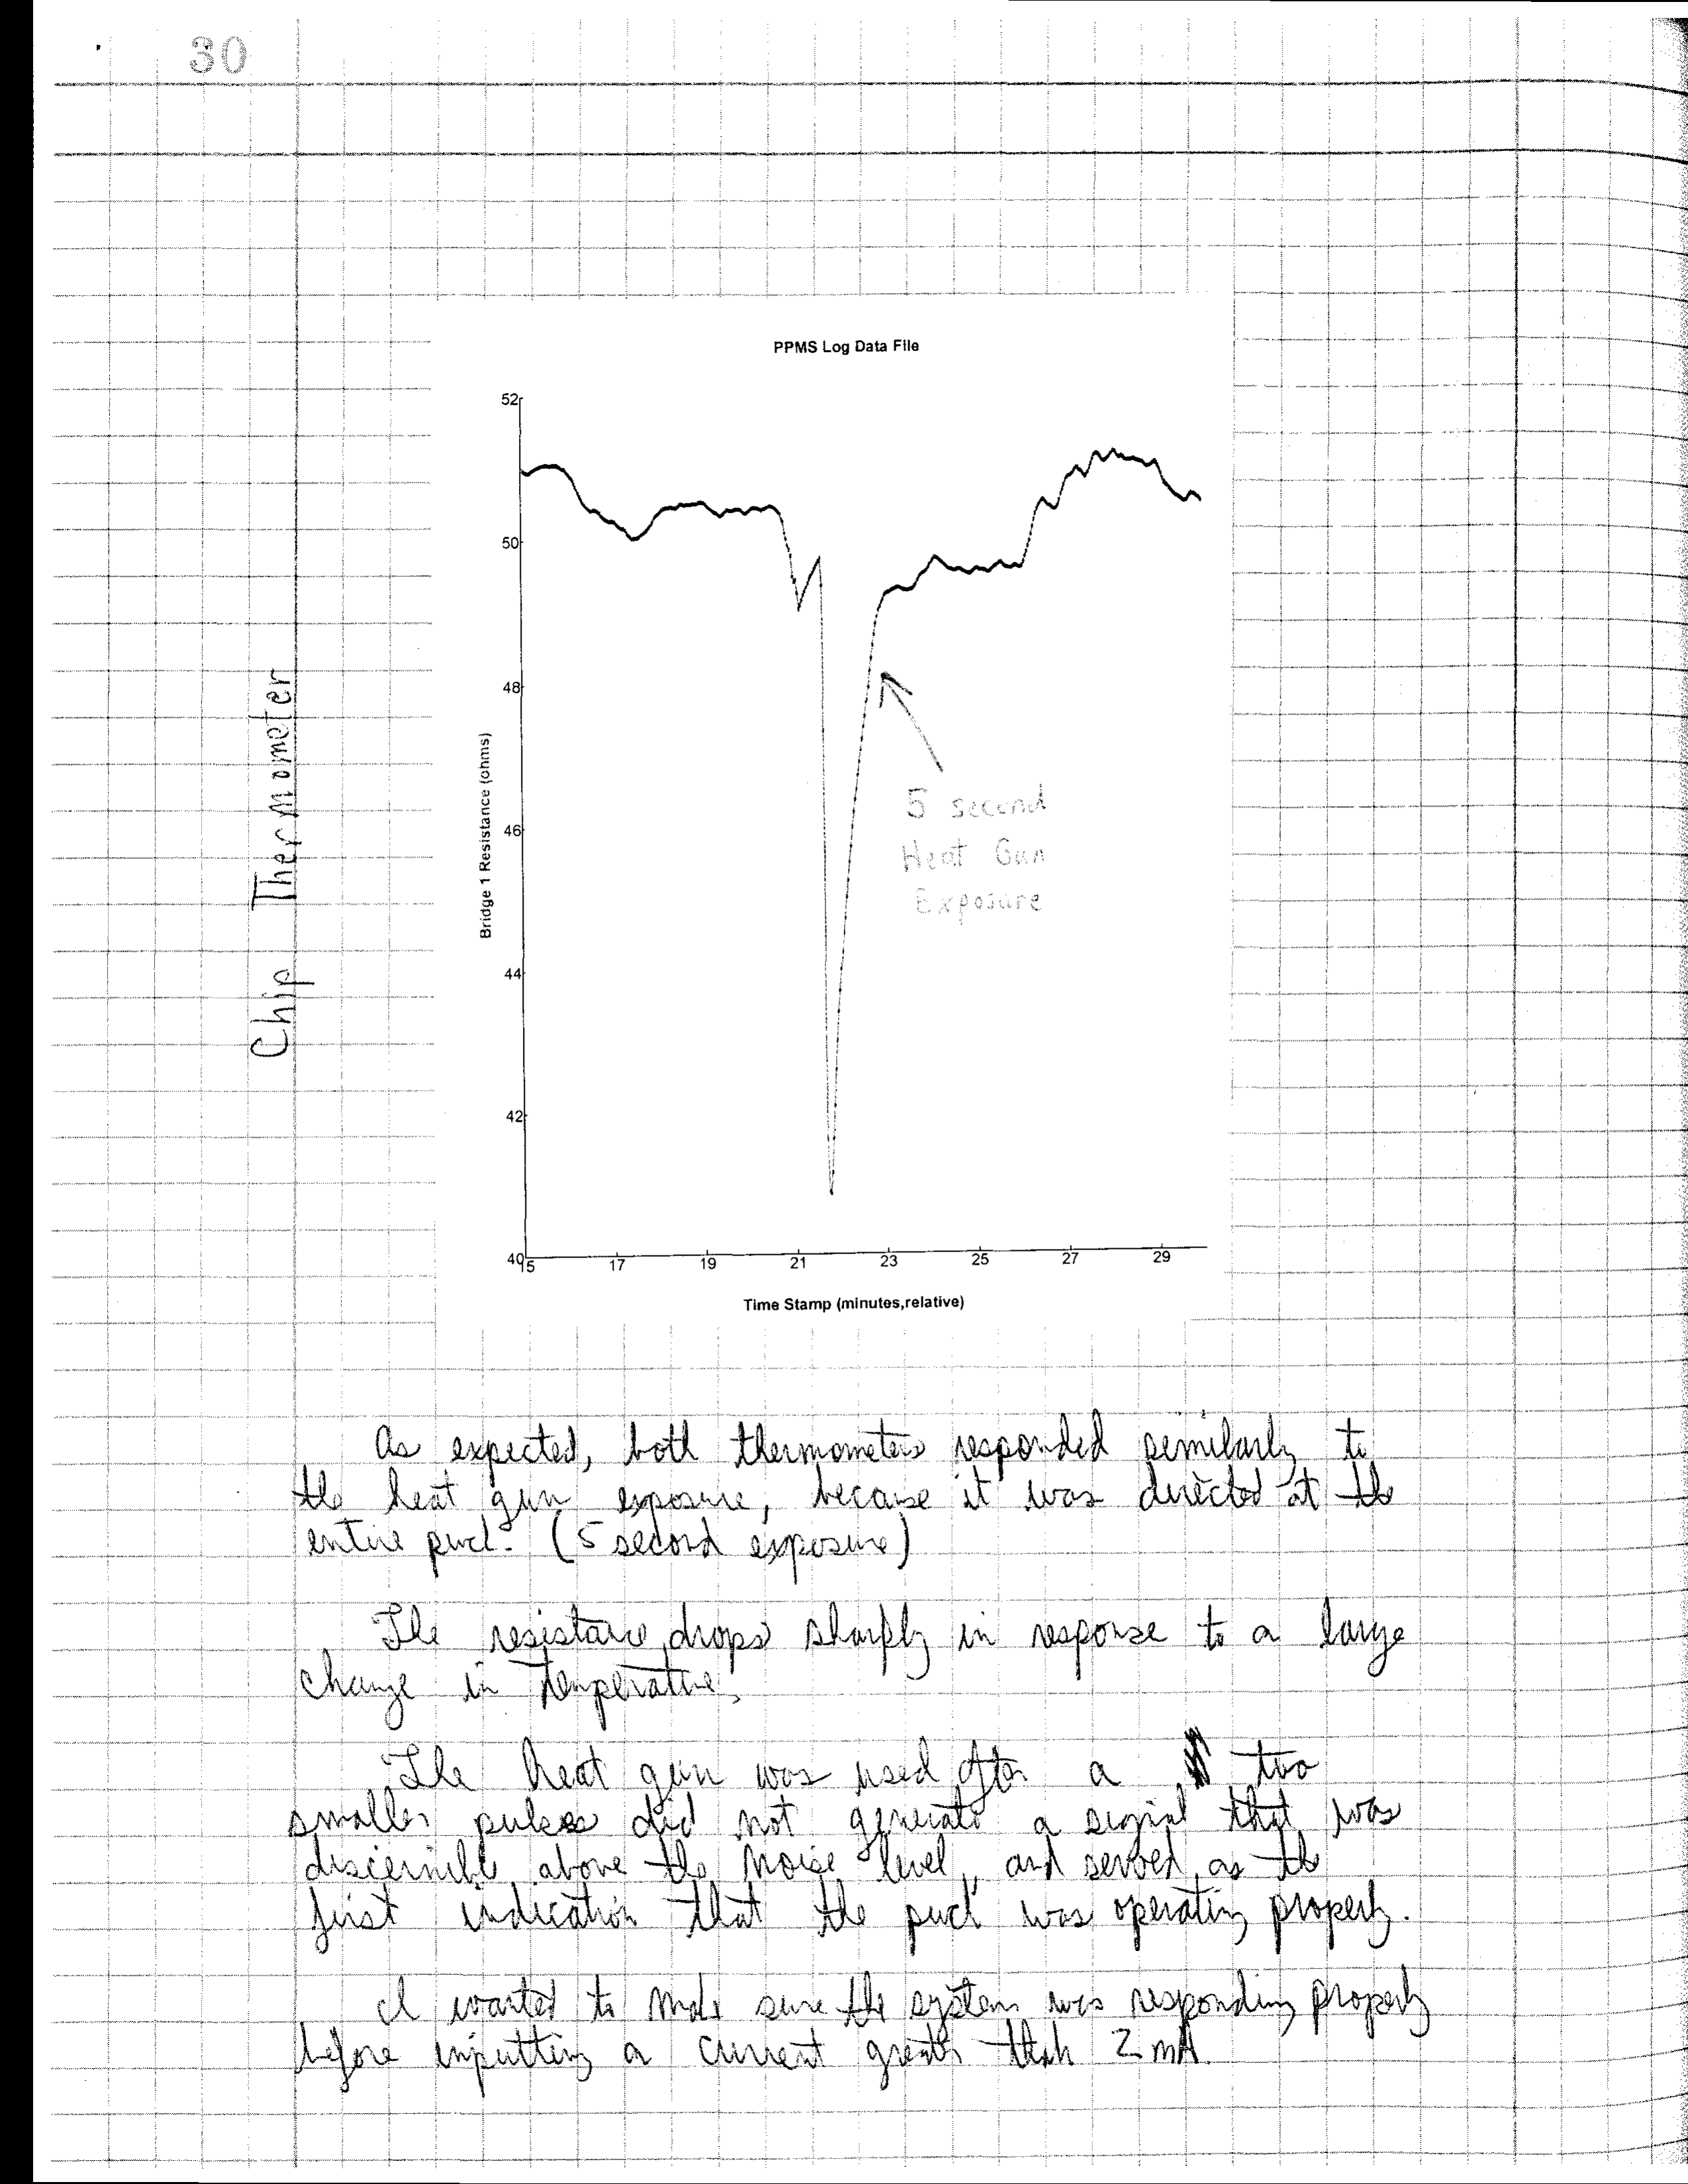 30
PPMS Log Data File
52
50
48
46
44
42
40
15 17 19 21 23 25 27 29
Bridge 1 Resistance (ohms)
Time Stamp (minutes,relative)
Chip Thermometer
5 second
Heat Gun
Exposure
As expected, both thermometers responded similarly to
the heat gun exposure, because it was directed at the
entire puck. (5 second exposure)
The resistance drops sharply in response to a large
change in temperature.
The heat gun was used after a two
smaller pulses did not generate a signal that was
discernible above the noise level, and served as the
first indication that the puck was operating properly.
I wanted to make sure the system was responding properly
before inputting a current greater than 2 mA.